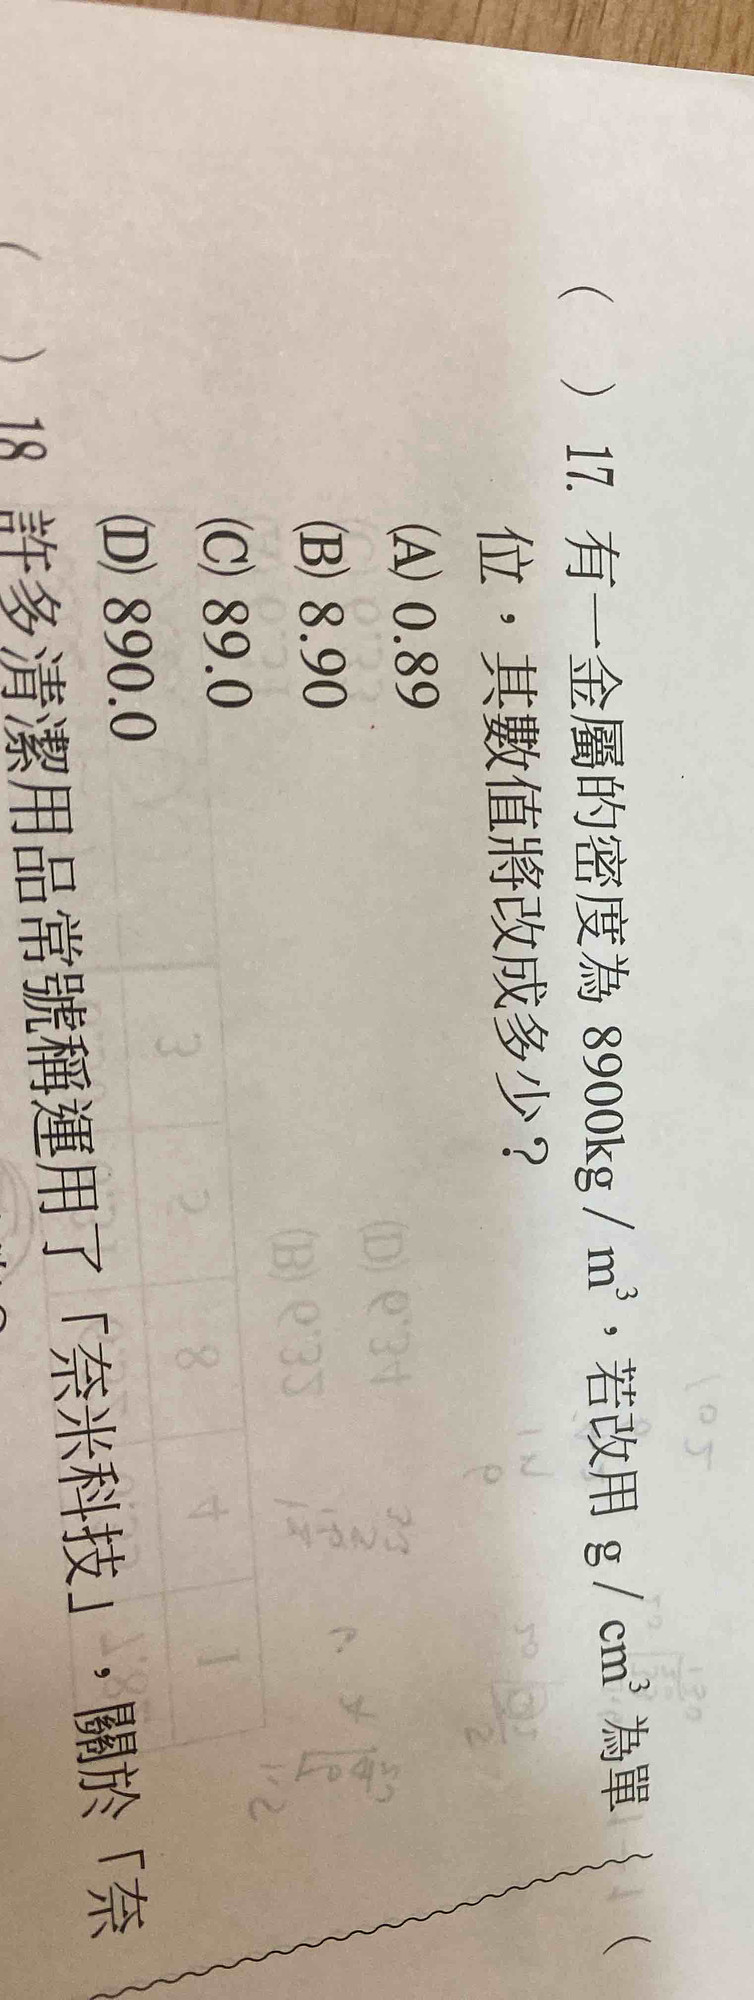 ( ) 17. 有一金屬的密度為 8900kg / m³，若改用 g / cm³ 為單
位，其數值將改成多少？
(A) 0.89
(B) 8.90
(C) 89.0
(D) 890.0
( ) 18 許多清潔用品常號稱運用了「奈米科技」，關於「奈
(